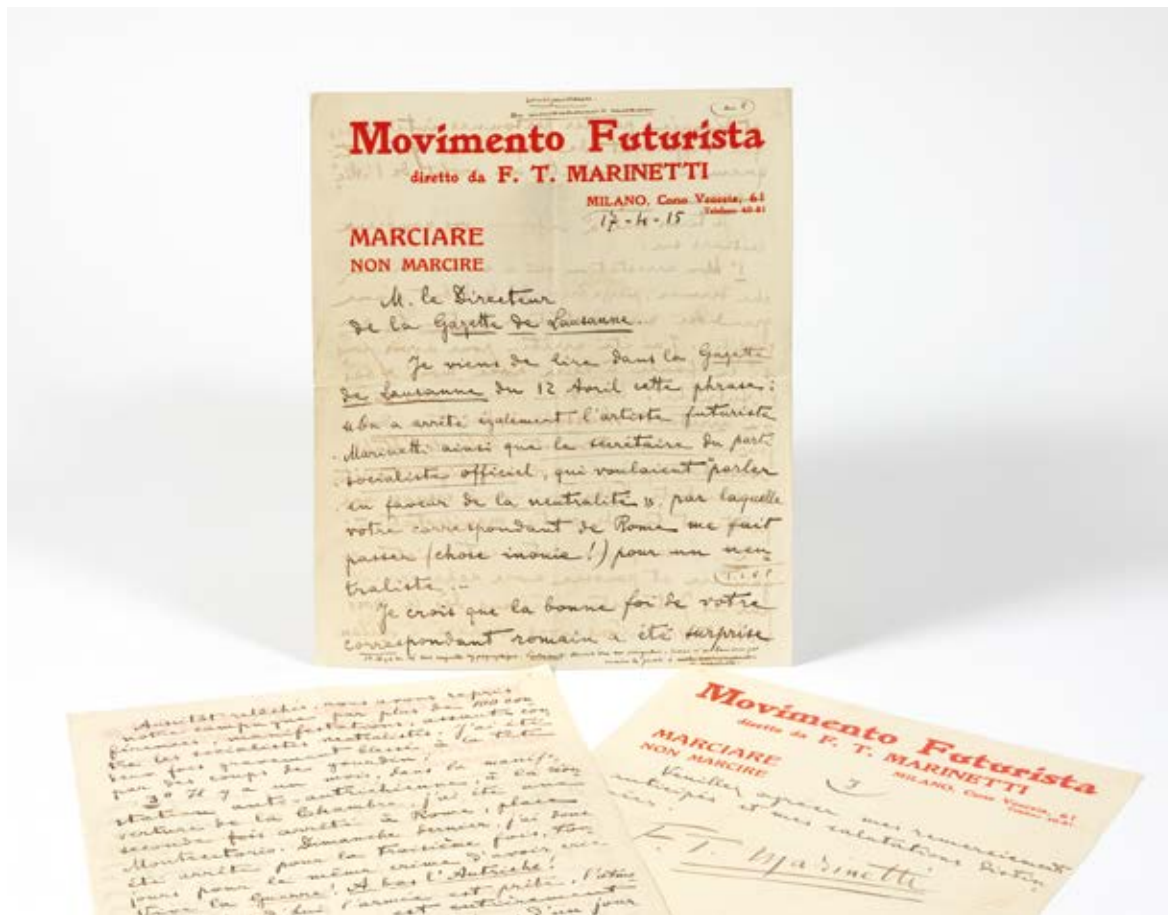 Movimento Futurista
diretto da F. T. MARINETTI
MILANO, Corso Venezia, 61
Telefono 40-81
17-4-15
MARCIARE
NON MARCIRE
M. le Directeur
de la Gazette de Lausanne.
Je viens de lire dans la Gazette
de Lausanne du 12 Avril cette phrase:
« on a arrêté également l'artiste futuriste
Marinetti ainsi que le secrétaire du parti
socialiste officiel, qui voulaient parler
en faveur de la neutralité », par laquelle
votre correspondant de Rome me fait
passer (chose inouïe!) pour un neu
traliste...
Je crois que la bonne foi de votre
correspondant romain a été surprise
Aussitôt relâchés, nous avons repris
notre campagne par plus de 100 con
férences, manifestations, assauts con
tre les socialistes neutralistes. J'ai été
deux fois gravement blessé à la tête
par des coups de gourdin!
3° Il y a un mois, dans la manif.
station anti-autrichienne, à la réou
verture de la Chambre, j'ai été une
seconde fois arrêté à Rome, place
Montecitorio. Dimanche dernier, j'ai donc
été arrêté pour la troisième fois, tou
jours pour le même crime d'avoir crié
Vive la Guerre! A bas l'Autriche!
l'armée est prête, l'état
est entièrement
d'un jour
Movimento Futurista
diretto da F. T. MARINETTI
MILANO, Corso Venezia, 61
Telefono 40-81
MARCIARE
NON MARCIRE
3
Veuillez agréer mes remerciements
anticipés et mes salutations distin
F. T. Marinetti